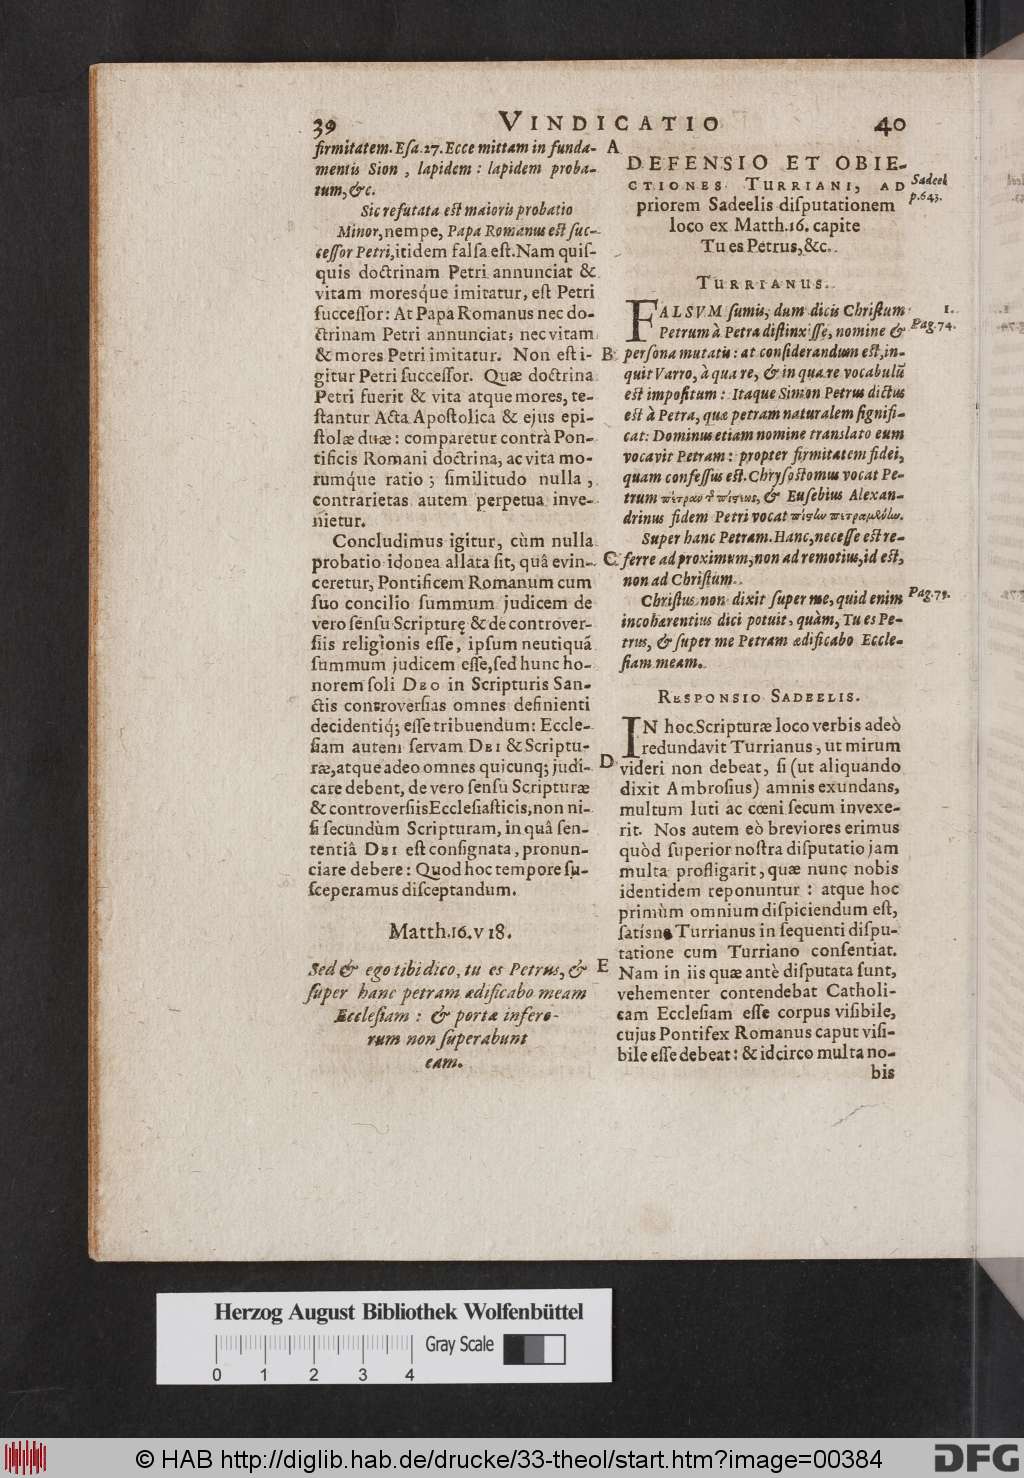 39
VINDICATIO
40
firmitatem. Esa.27. Ecce mittam in funda-
mentis Sion, lapidem: lapidem proba-
tum, &c.
Sic refutata est maioris probatio
Minor, nempe, Papa Romanus est suc-
cessor Petri, itidem falsa est. Nam quis-
quis doctrinam Petri annunciat &
vitam moresq́ue imitatur, est Petri
successor: At Papa Romanus nec do-
ctrinam Petri annunciat; nec vitam
& mores Petri imitatur. Non est i-
gitur Petri successor. Quæ doctrina
Petri fuerit & vita atque mores, te-
stantur Acta Apostolica & ejus epi-
stolæ duæ: comparetur contrà Pon-
tificis Romani doctrina, ac vita mo-
rumq́ue ratio; similitudo nulla,
contrarietas autem perpetua inve-
nietur.
Concludimus igitur, cùm nulla
probatio idonea allata sit, quâ evin-
ceretur, Pontificem Romanum cum
suo concilio summum judicem de
vero sensu Scripturę & de controver-
siis religionis esse, ipsum neutiquã
summum judicem esse, sed hunc ho-
norem soli DEO in Scripturis San-
ctis controversias omnes definienti
decidentiq́; esse tribuendum: Eccle-
siam autem servam DEI & Scriptu-
ræ, atque adeo omnes quicunq; judi-
care debent, de vero sensu Scripturæ
& controversiis Ecclesiasticis, non ni-
si secundùm Scripturam, in quâ sen-
tentiâ DEI est consignata, pronun-
ciare debere: Quod hoc tempore su-
sceperamus disceptandum.
Matth.16.v 18.
Sed & ego tibi dico, tu es Petrus, &
super hanc petram ædificabo meam
Ecclesiam: & portæ infero-
rum non superabunt
eam.
A
B
C
D
E
DEFENSIO ET OBIE-
CTIONES TURRIANI, AD
priorem Sadeelis disputationem
loco ex Matth.16. capite
Tu es Petrus, &c.
Sadeel
p.643.
TURRIANUS.
FALSVM sumis, dum dicis Christum
Petrum à Petra distinxisse, nomine &
persona mutatis: at considerandum est, in-
quit Varro, à qua re, & in qua re vocabulũ
est impositum: Itaque Simon Petrus dictus
est à Petra, quæ petram naturalem signifi-
cat: Dominus etiam nomine translato eum
vocavit Petram: propter firmitatem fidei,
quam confessus est. Chrysostomus vocat Pe-
trum πέτραν τ̃ πίστεως, & Eusebius Alexan-
drinus fidem Petri vocat
Super hanc Petram. Hanc, necesse est re-
ferre ad proximum, non ad remotius, id est,
non ad Christum.
Christus non dixit super me, quid enim
incohærentius dici potuit, quàm, Tu es Pe-
trus, & super me Petram ædificabo Eccle-
siam meam.
1.
Pag.74.
Pag.79.
RESPONSIO SADEELIS.
IN hoc Scripturæ loco verbis adeò
redundavit Turrianus, ut mirum
videri non debeat, si (ut aliquando
dixit Ambrosius) amnis exundans,
multum luti ac cœni secum invexe-
rit. Nos autem eò breviores erimus
quòd superior nostra disputatio jam
multa profligarit, quæ nunc nobis
identidem reponuntur: atque hoc
primùm omnium dispiciendum est,
satisne Turrianus in sequenti dispu-
tatione cum Turriano consentiat.
Nam in iis quæ antè disputata sunt,
vehementer contendebat Catholi-
cam Ecclesiam esse corpus visibile,
cujus Pontifex Romanus caput visi-
bile esse debeat: & idcirco multa no-
bis
Herzog August Bibliothek Wolfenbüttel
Gray Scale
0 1 2 3 4
© HAB http://diglib.hab.de/drucke/33-theol/start.htm?image=00384
DFG